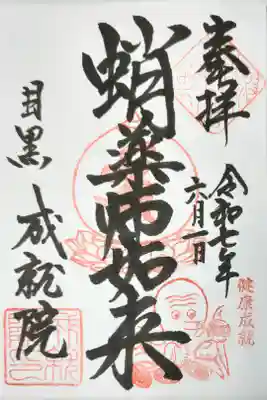 奉拝
令和七年
六月一日
健康成就
蛸薬師如来
目黒 成就院